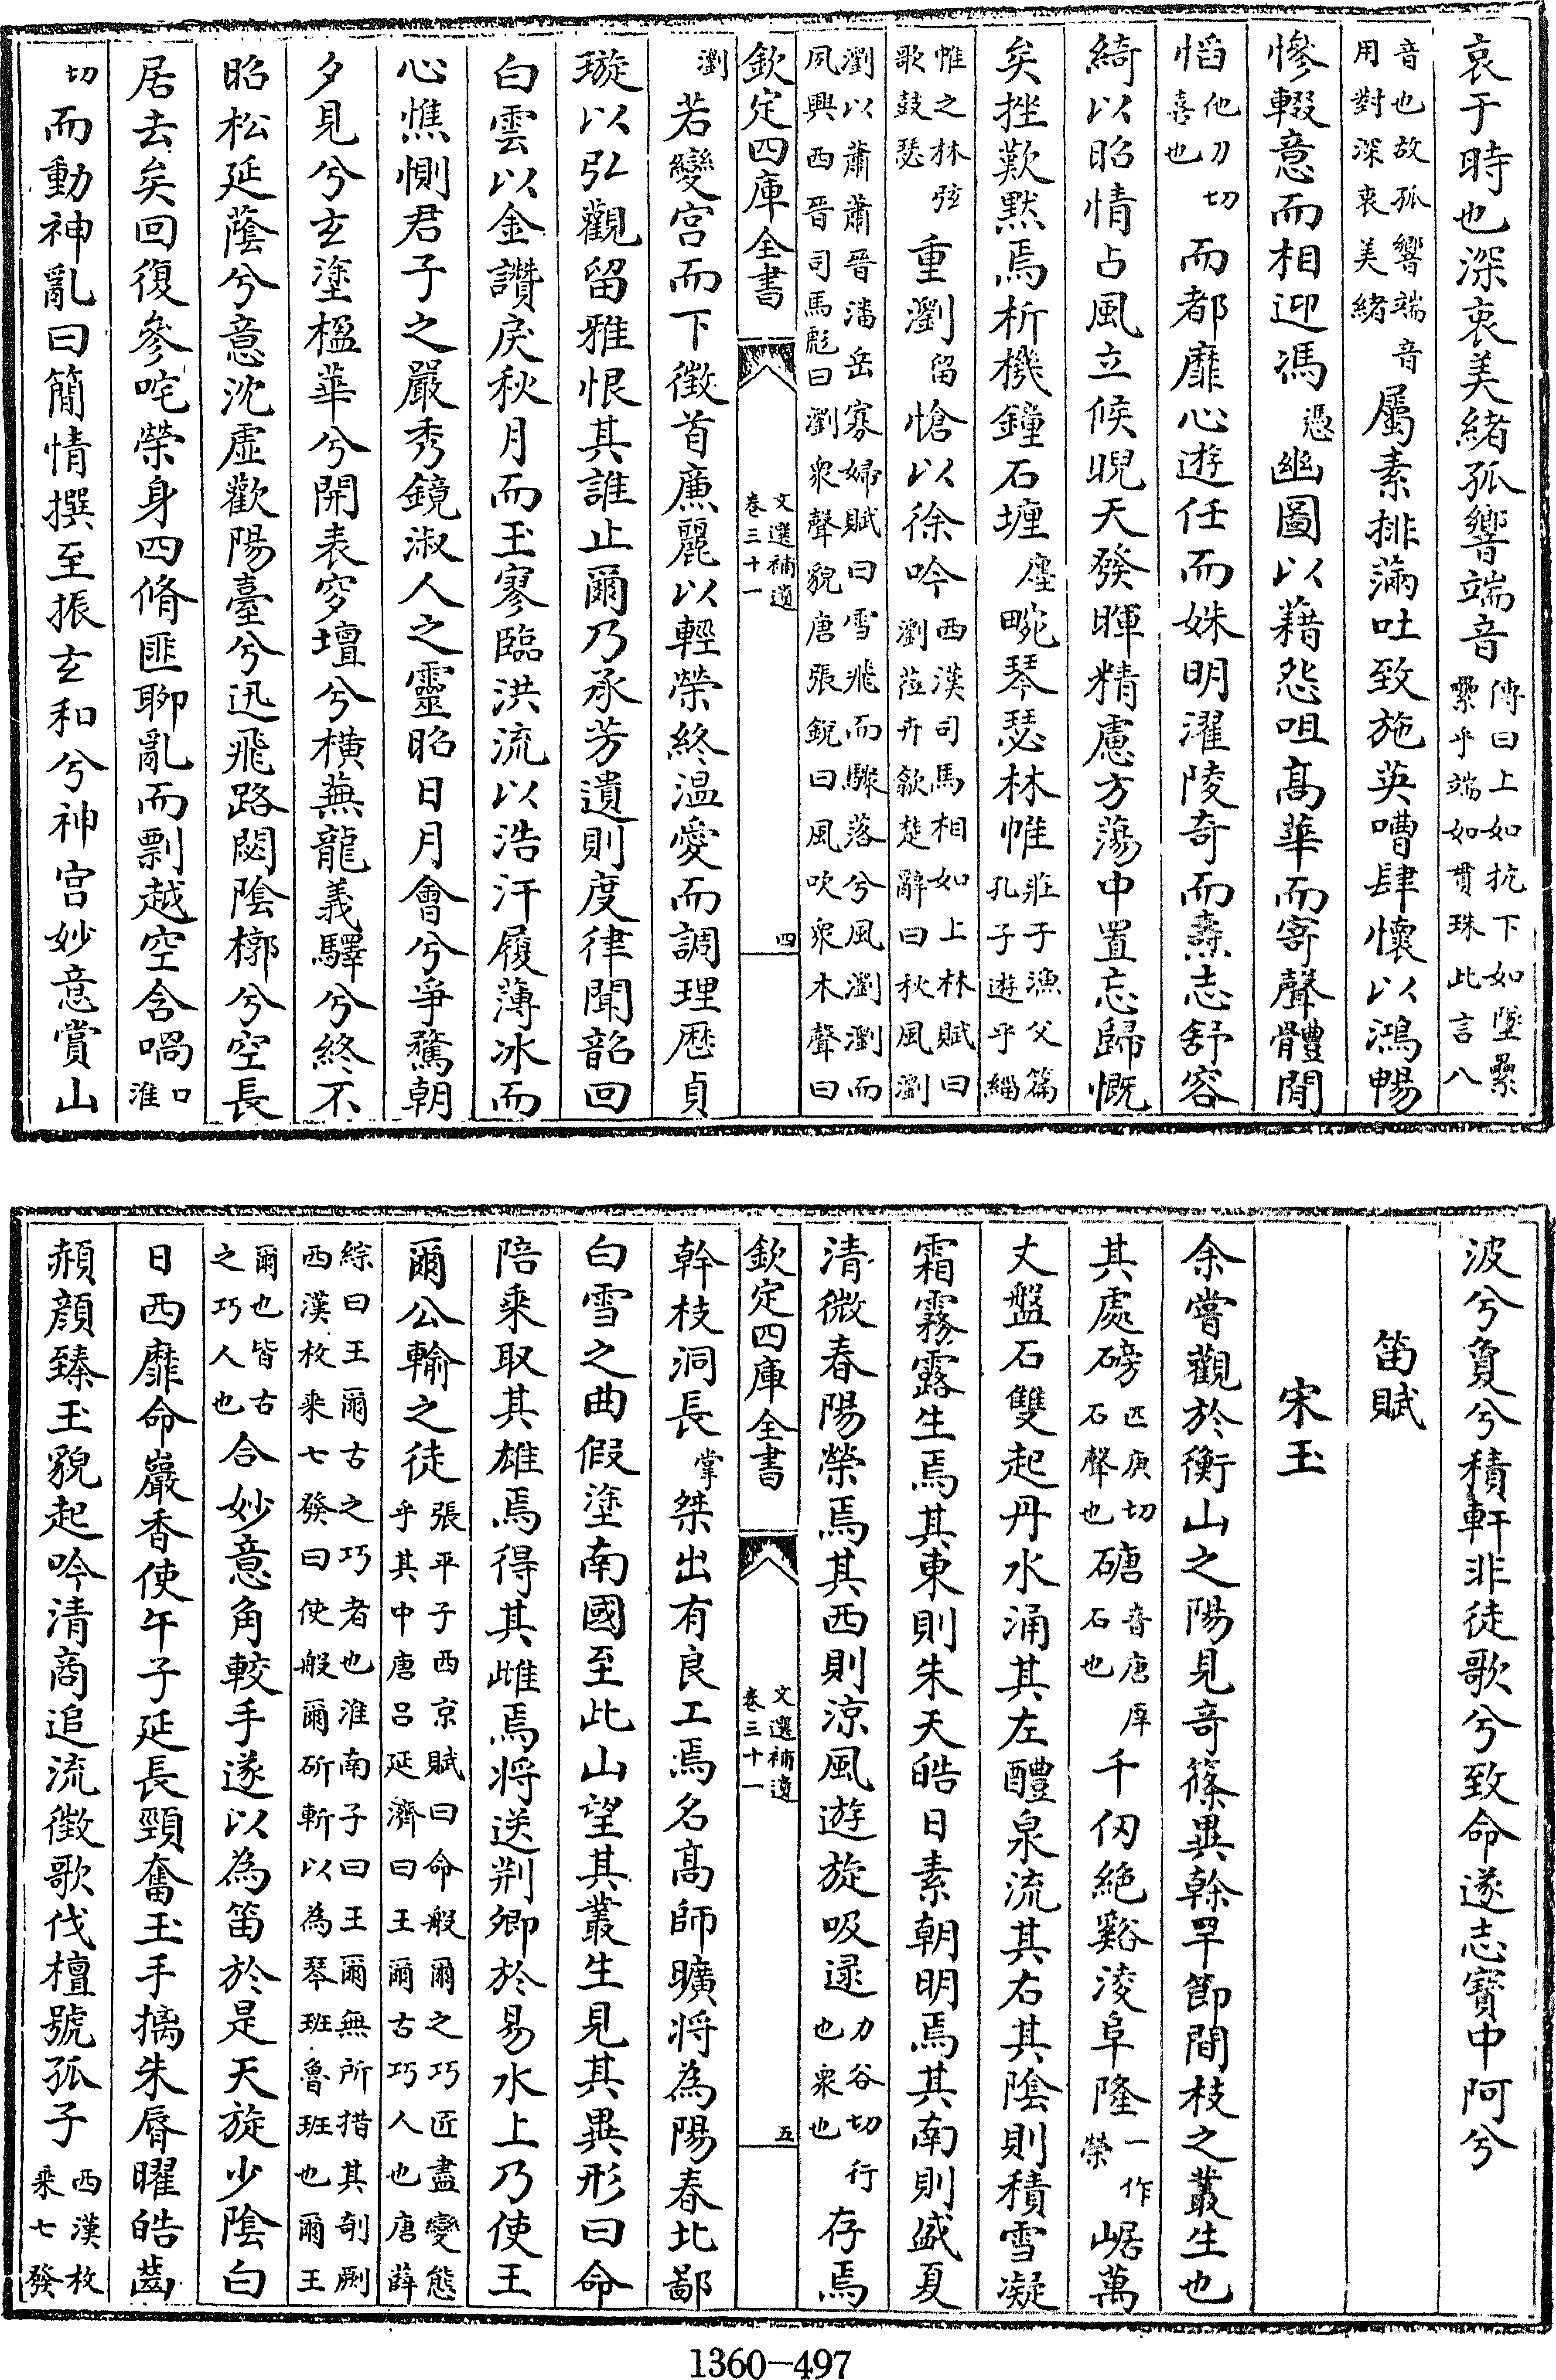 哀于時也深衷美緒孤響端音傳曰上如抗下如墜纍纍乎端如貫珠此言八
音也故孤響端音用對深衷美緒屬素排滿吐致施英嘈肆懷以鴻暢
慘輟意而相迎馮憑幽圖以藉怨咀高華而寄聲體閒
慆他刀切喜也而都靡心遊任而姝明濯陵奇而燾志舒容
綺以昭情占風立候睨天發暉精慮方蕩中置忘歸慨
矣挫歎黙焉析機鐘石㙻塵畹琴瑟林帷莊子漁父篇孔子遊乎緇
帷之林弦歌鼓瑟重瀏留愴以徐吟西漢司馬相如上林賦曰瀏莅卉歙楚辭曰秋風瀏
瀏以蕭蕭晉潘岳寡婦賦曰雪飛而驟落兮風瀏瀏而夙興西晉司馬彪曰瀏衆聲貌唐張銳曰風吹衆木聲曰
欽定四庫全書 文選補遺卷三十一 四
瀏若變宫而下徵首㢘麗以輕榮終温愛而調理厯貞
璇以弘觀留雅恨其誰止爾乃承芳遺則度律聞韶回
白雲以金讚戾秋月而玉寥臨洪流以浩汗履薄冰而
心憔惻君子之嚴秀鏡淑人之靈昭日月會兮爭騖朝
夕見兮玄塗楹華兮開表穸壇兮横蕪龍義驛兮終不
昭松延蔭兮意沈虛歡陽臺兮迅飛路閟陰槨兮空長
居去矣回復參咤榮身四脩匪聊亂而剽越空含喎口淮
切而動神亂曰簡情撰至振玄和兮神宫妙意賞山
波兮負兮積軒非徒歌兮致命遂志寳中阿兮
笛賦
宋玉
余嘗觀於衡山之陽見奇篠異幹罕節間枝之叢生也
其處磅匹庚切石聲也磄音唐厗石也千仞絶谿淩阜隆一作榮崛萬
丈盤石雙起丹水涌其左醴泉流其右其陰則積雪凝
霜霧露生焉其東則朱天皓日素朝明焉其南則盛夏
清微春陽榮焉其西則涼風遊旋吸逯力谷切行也衆也存焉
欽定四庫全書 文選補遺卷三十一 五
幹枝洞長掌桀出有良工焉名高師曠將為陽春北鄙
白雪之曲假塗南國至此山望其叢生見其異形曰命
陪乗取其雄焉得其雌焉將送荆卿於易水上乃使王
爾公輸之徒張平子西京賦曰命般爾之巧匠盡變態乎其中唐吕延濟曰王爾古巧人也唐薛
綜曰王爾古之巧者也淮南子曰王爾無所措其剞劂西漢枚乗七發曰使般爾斫斬以為琴班魯班也爾王
爾也皆古之巧人也合妙意角較手遂以為笛於是天旋少陰白
日西靡命嚴香使午子延長頸奮玉手摛朱脣曜皓齒
頳顔臻玉貌起吟清商追流徵歌伐檀號孤子西漢枚乗七發
1360—497